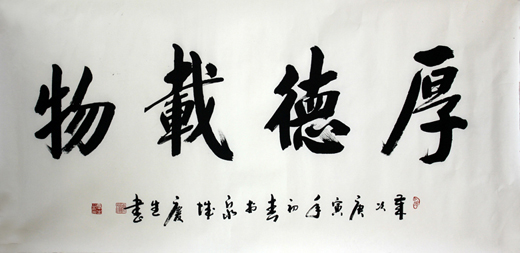 厚德載物
歲次庚寅年初春於泉城慶生書